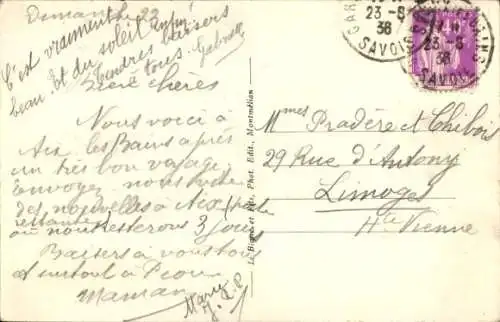 Dimanche 22
C'est vraiment
beau. Et du soleil enfin!
Tendres baisers
à tous. Gabrielle
chères
Nous voici à
Aix les Bains après
un très bon voyage.
envoyez nous vite
des nouvelles à Aix (poste
restante
où nous resterons 3 jours
Baisers à vous tous
et surtout à
Maman
Mary
Mmes Pradère et Chibois
29 Rue d'Antony
Limoges
Hte Vienne
Phot. Edit., Montmélian
GARE
23 -8
36
SAVOIE
23 -8
36
SAVOIE